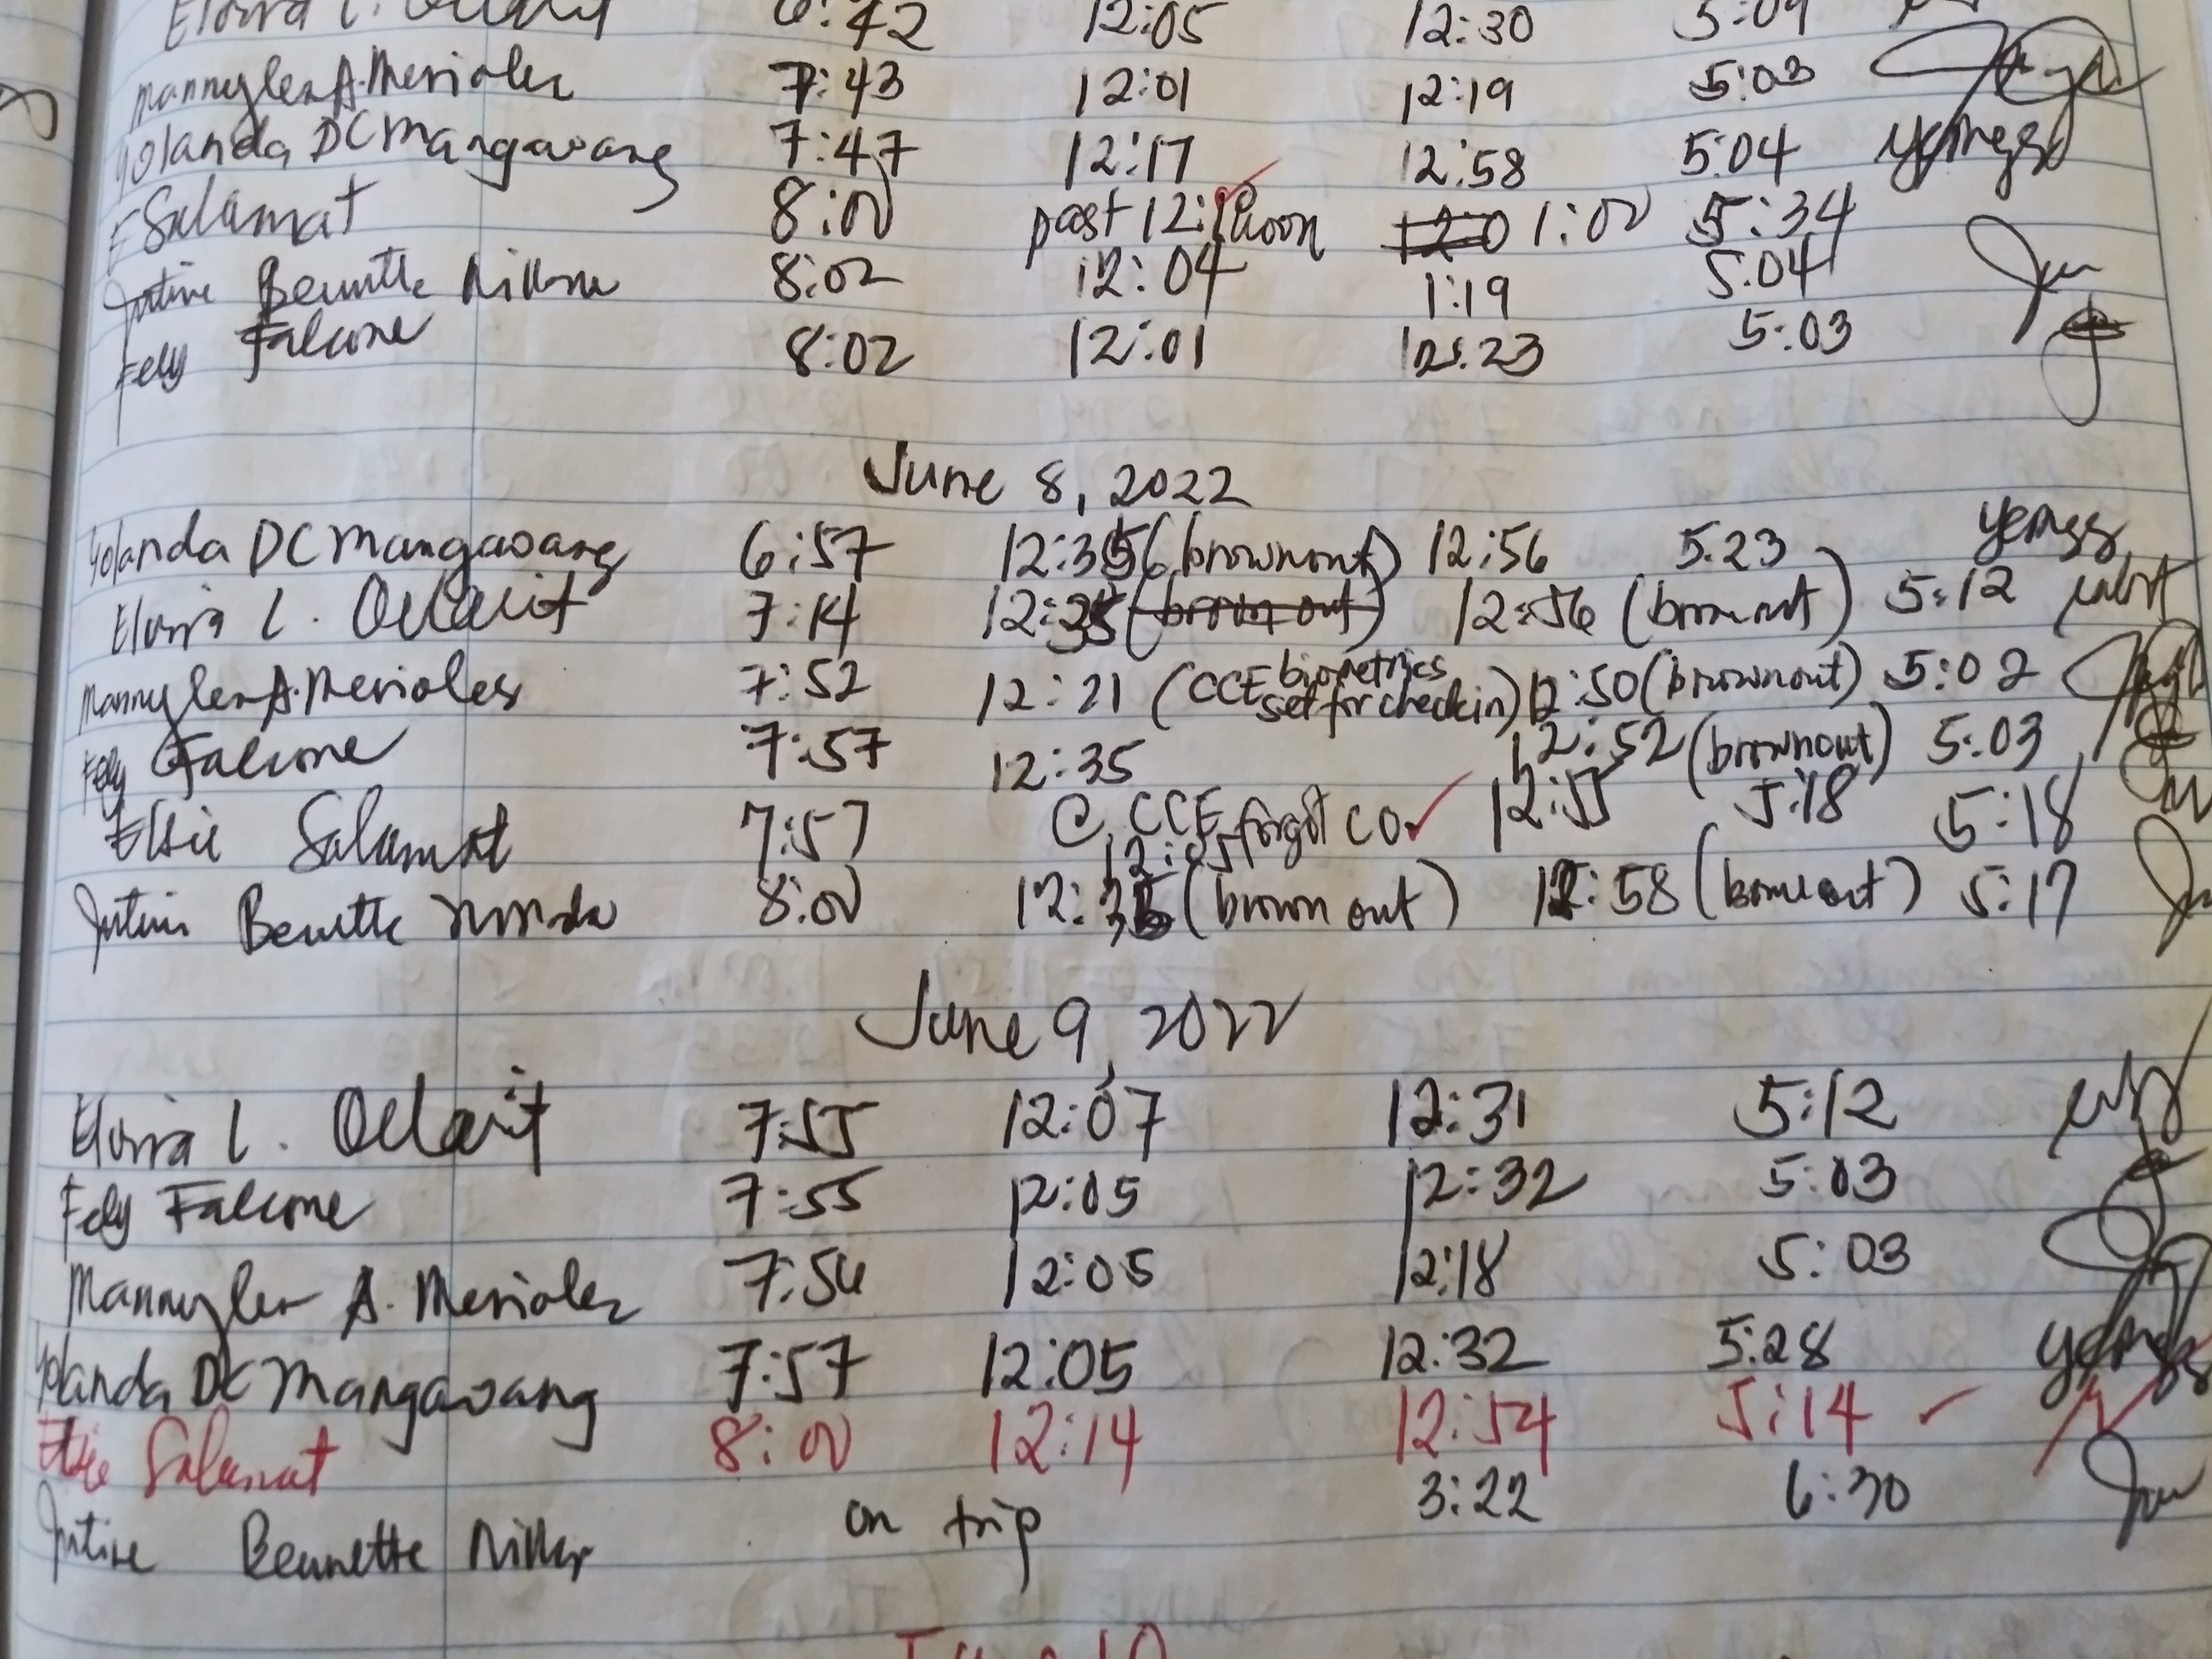 6:42 12:05 12:30 5:09
Mannylen A. Merioles 7:43 12:01 12:19 5:03
Yolanda DC Mangawang 7:47 12:17 12:58 5:04 yemgs
E Salamat 8:00 past 12: noon 1:00 5:34
Bennette 8:02 12:04 1:19 5:04
Fely Falcone 8:02 12:01 12:23 5:03
June 8, 2022
Yolanda DC Mangawang 6:57 12:35 (brownout) 12:56 5:23 yemgs
Elvira L. 7:14 12:35 (brown out) 12:56 (brownout) 5:12
Mannylen A. Merioles 7:52 12:21 (CCE biometrics set for checkin) 12:50 (brownout) 5:02
Fely Falcone 7:57 12:35 12:52 (brownout) 5:03
Elsie Salamat 7:57 @ CCE forgot CO 12:55 5:18 5:18
12:05
Bennette 8:00 (brown out) 12:58 (brownout) 5:17
June 9, 2022
Elvira L. 7:55 12:07 12:31 5:12
Fely Falcone 7:55 12:05 12:32 5:03
Mannylen A. Merioles 7:56 12:05 12:18 5:03
Yolanda DC Mangawang 7:57 12:05 12:32 5:28 yemgs
Elsie Salamat 8:00 12:14 12:54 5:14
Bennette on trip 3:22 6:30